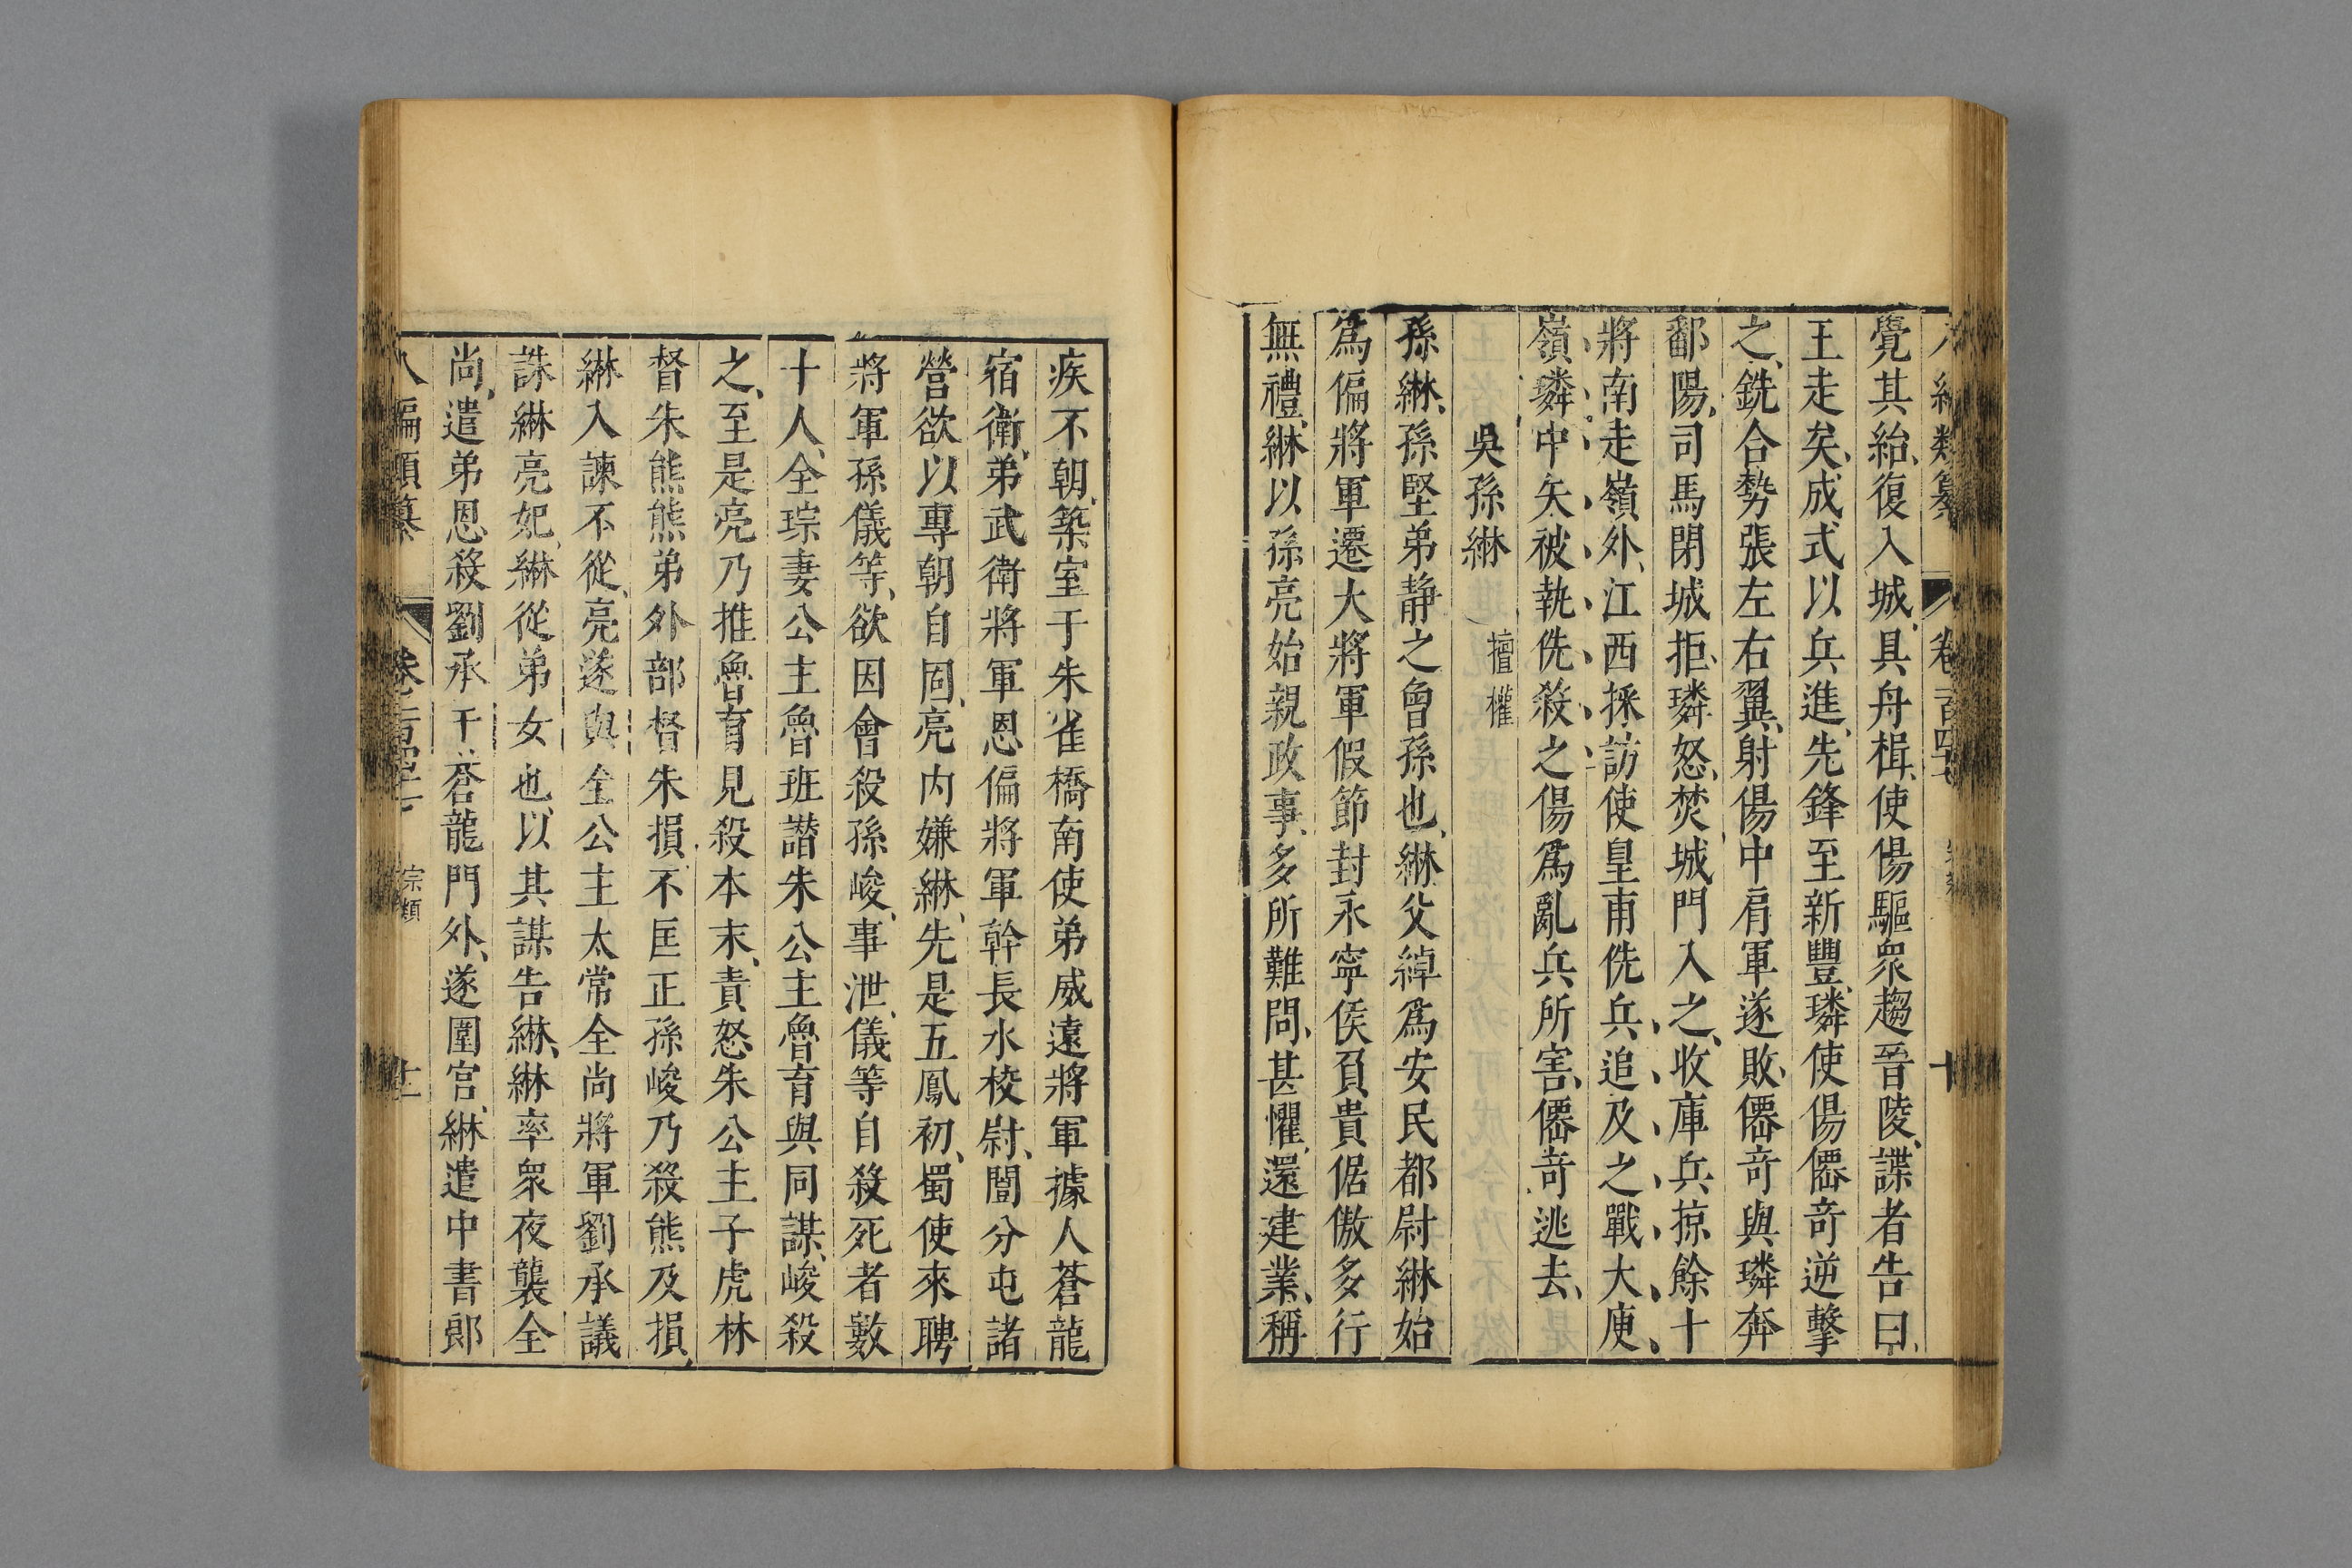 覺其紿、復入城、具舟楫、使傷驅衆趨晉陵、諜者告曰、
王走矣、成式以兵進、先鋒至新豐、璘使傷僊奇逆擊
之、銑合勢張左右翼、射傷中肩軍遂敗、僊奇與璘奔
鄱陽、司馬閉城拒、璘怒、焚城門入之、收庫兵掠餘十
將南走嶺外、江西採訪使皇甫侁兵追及之戰大庾
嶺璘中矢被執侁殺之傷爲亂兵所害、僊奇逃去、
吳孫綝 擅權
孫綝、孫堅弟靜之曾孫也、綝父綽爲安民都尉綝始
爲偏將軍遷大將軍假節封永寧侯負貴倨傲多行
無禮、綝以孫亮始親政事、多所難問、甚懼、還建業、稱
疾不朝、築室于朱雀橋南使弟威遠將軍據人蒼龍
宿衛、弟武衛將軍恩偏將軍幹長水校尉、闓分屯諸
營欲以專朝自固、亮內嫌綝、先是五鳳初、蜀使來聘
將軍孫儀等、欲因會殺孫峻、事泄、儀等自殺死者數
十人、全琮妻公主魯班譖朱公主魯育與同謀、峻殺
之、至是亮乃推魯育見殺本末、責怒朱公主子虎林
督朱熊熊弟外部督朱損、不匡正孫峻乃殺熊及損、
綝入諫不從、亮遂與全公主太常全尚將軍劉承議
誅綝亮妃、綝從弟女也、以其謀告綝、綝率衆夜襲全
尚、遣弟恩殺劉承于蒼龍門外、遂圍宮、綝遣中書郎
八編類纂 卷二百四十七 宗類 十二